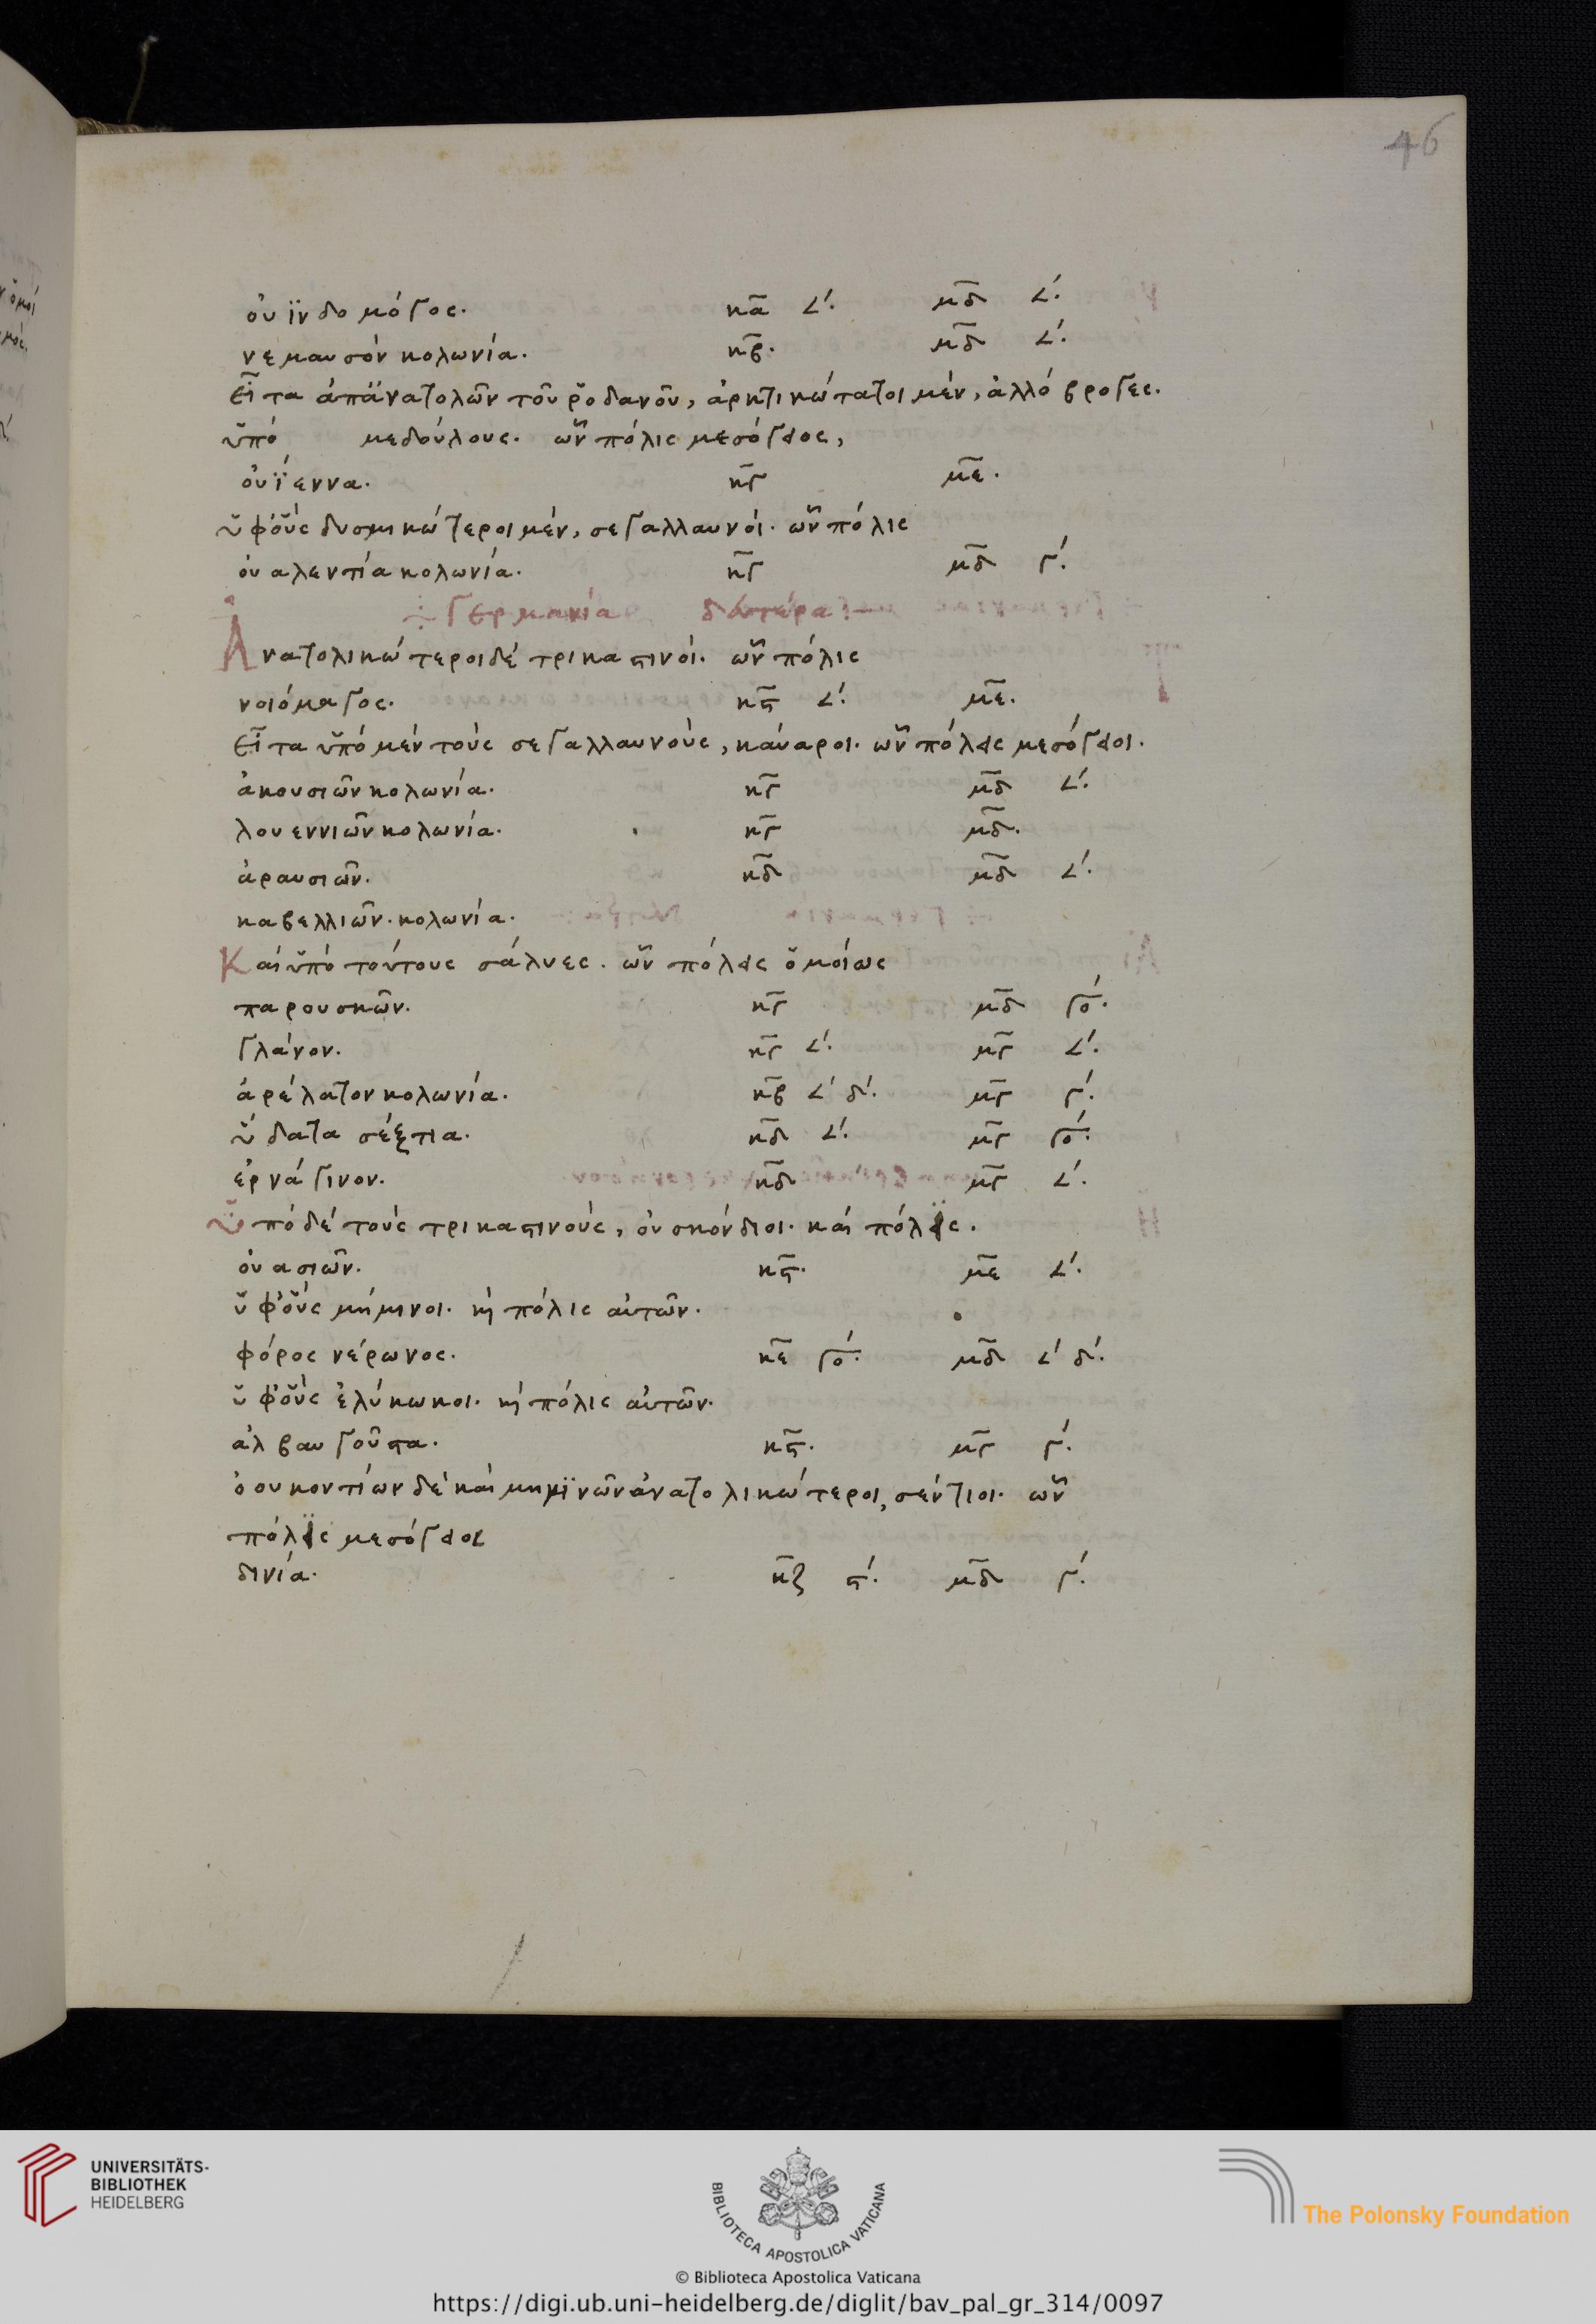 46
οὐϊνδομόγος. κ̅α̅ 𐅵. μ̅δ̅ 𐅵.
νεμαυσὸν κολωνία. κ̅β̅. μ̅δ̅ 𐅵.
εἶτα ἀπἀνατολῶν τοῦ ῥοδανοῦ, ἀρκτικώτατοι μὲν, ἀλλόβρογες.
ὑπὸ μεδούλους. ὧν πόλις μεσόγειος,
οὐΐεννα. κ̅γ̅ μ̅ε̅.
ὑφ' οὓς δυσμικώτεροι μὲν, σεγαλλαυνοί. ὧν πόλις
οὐαλεντία κολωνία. κ̅γ̅ μ̅δ̅ γ'.
÷ Γερμανία δευτέρα :–
Ἀνατολικώτεροι δὲ τρικαστινοί. ὧν πόλις
νοιόμαγος. κ̅ϛ̅ 𐅵. μ̅ε̅.
εἶτα ὑπὸ μὲν τοὺς σεγαλλαυνοὺς, κάυαροι. ὧν πόλεις μεσόγειοι.
ἀκουσιῶν κολωνία. κ̅γ̅ μ̅δ̅ 𐅵.
λουεννιῶν κολωνία. κ̅γ̅ μ̅δ̅.
ἀραυσιῶν. κ̅δ̅ μ̅δ̅ 𐅵.
καβελλιῶν. κολωνία.
Καὶ ὑπὸ τούτους σάλυες. ὧν πόλεις ὁμοίως
παρουσκῶν. κ̅γ̅ μ̅δ̅ γο'.
γλάνον. κ̅γ̅ 𐅵. μ̅γ̅ 𐅵.
ἀρέλατον κολωνία. κ̅β̅ 𐅵 δ'. μ̅γ̅ γ'.
ὕδατα σέξτια. κ̅δ̅ 𐅵. μ̅γ̅ γο'.
ἐρνάγινον. κ̅δ̅ μ̅γ̅ 𐅵.
Ὑπὸ δὲ τοὺς τρικαστινοὺς, οὐσκόνδιοι. καὶ πόλις.
οὐασιῶν. κ̅ϛ̅. μ̅ε̅ 𐅵.
ὑφ' οὓς μήμινοι. ἡ πόλις αὐτῶν.
φόρος νέρωνος. κ̅ε̅ γο'. μ̅δ̅ 𐅵 δ'.
ὑφ' οὓς ἐλύκωκοι. ἡ πόλις αὐτῶν.
ἀλβαυγοῦστα. κ̅ϛ̅. μ̅γ̅ γ'.
ὀουκοντίων δὲ καὶ μημϊνῶν ἀνατολικώτεροι, σέντιοι. ὧν
πόλις μεσόγειος
δινία. κ̅ζ̅ ϛ'. μ̅δ̅ γ'.
UNIVERSITÄTS-
BIBLIOTHEK
HEIDELBERG
BIBLIOTECA APOSTOLICA VATICANA
The Polonsky Foundation
© Biblioteca Apostolica Vaticana
https://digi.ub.uni-heidelberg.de/diglit/bav_pal_gr_314/0097